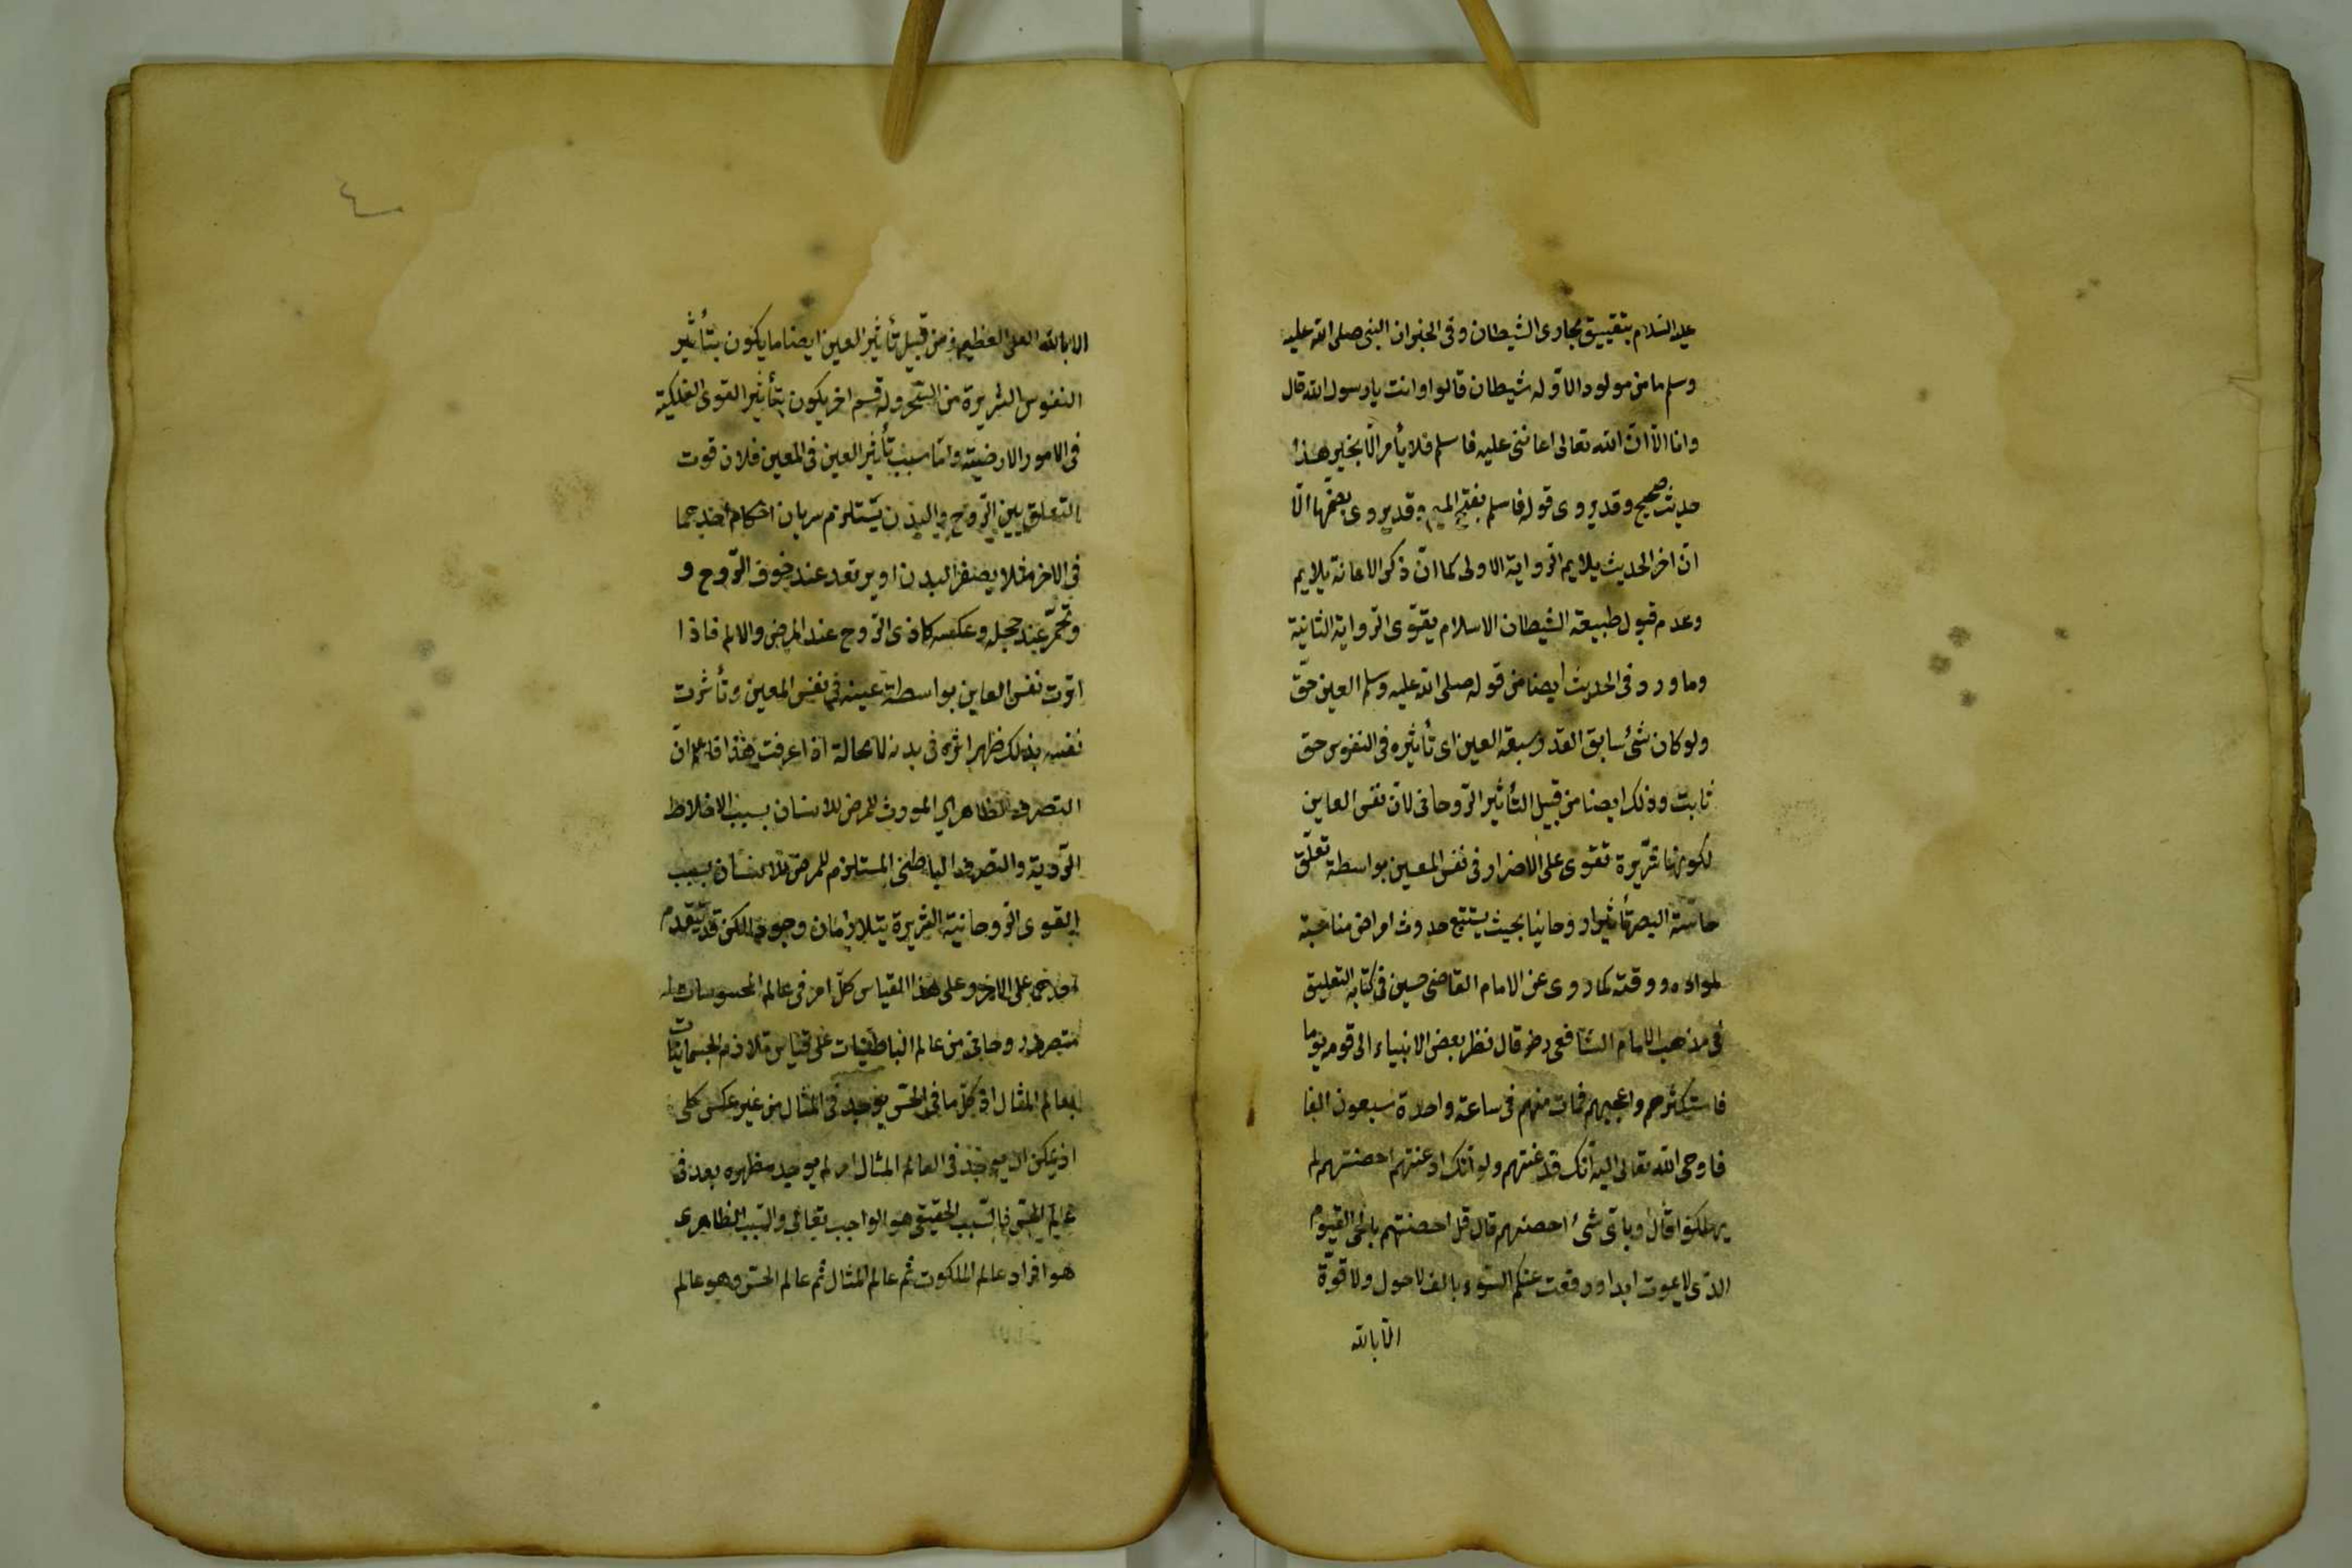 عليه السلام بتضييق مجاوى الشيطان وفى الخبر ان النبى صلى الله عليه
وسلم ما من مولود الا وله شيطان قالوا وانت يا رسول الله قال
وانا الا انّ الله تعالى اعاننى عليه فاسلم فلا يأمر الّا بخير هذا
حديث صحيح وقد يروى قوله فاسلم بفتح الميم وقد يروى بضمّها الّا
انّ اخر الحديث يلايم الرواية الاولى كما انّ ذكر الاعانة يلايم
وعدم قبول طبيعة الشيطان الاسلام يقوّى الرواية الثانية
وما ورد فى الحديث ايضا من قوله صلى الله عليه وسلم العين حقّ
ولو كان شئ سابق القدر سبقه العين اى تأثيره فى النفوس حق
ثابت وذلك ايضا من قبيل التأثير الروحانى لانّ نفس العاين
لكونها شرّيرة تقوى على الاضرار فى نفس المعين بواسطة تعلّق
حاسّة البصر تأثيرا روحانيا بحيث يستتبع حدوث امراض مناسبة
لمواده ووقته كما روى عن الامام القاضى حسين فى كتابه التعليق
فى مذهب الامام الشافعى رضـ قال نظر بعض الانبياء الى قومه يوما
فاستكثرهم واعجبهم فمات منهم فى ساعة واحدة سبعون الفا
فاوحى الله تعالى اليه انّك قد عنتهم ولو انّك اذ عنتهم احصنتهم لم
يهلكوا قال وباى شئ احصنهم قال قل احصنتهم بالحى القيوم
الذى لا يموت ابدا ودفعت عنكم السّوء بالف لا حول ولا قوّة
الّا بالله
٤٠
الا بالله العلى العظيم ومن قبيل تأثير العين ايضا ما يكون بتأثير
النفوس الشريرة من السّحر وله قسم اخر يكون بتأثير القوى الفلكية
فى الامور الارضية وامّا سبب تأثير العين فى المعين فلان قوت
التعلق بين الرّوح والبدن يستلزم سريان احكام احديهما
فى الاخر مثلا يصفر البدن او يرتعد عند خوف الرّوح و
وتحمّر عند خجله وعكسه كاذى الرّوح عند المرض والالم فاذا
اثرت نفس العاين بواسطة عينه فى نفس المعين وتأثرت
نفسه بذلك ظهر اثره فى بدنه لا محالة اذا عرفت هذا فاعلم انّ
التصرف الظاهرى المورث للمرض للانسان بسبب الاخلاط
الرّدية والتصرف الباطنى المستلزم للمرض للانسان بسبب
القوى الروحانية الشريرة يتلازمان وجودا لكن قد يتقدم
احدهما على الاخر وعلى هذا القياس كلّ امر فى عالم المحسوسات له
متصرف روحانى من عالم الباطنيات على قياس تلازم الجسمانيات
لعالم المثال اذ كلّ ما فى الحسّ يوجد فى المثال من غير عكس كلى
اذ يمكن ان يوجد فى العالم المثال امر لم يوجد مظهره بعد فى
عالم الحسّ فالسّبب الحقيقى هو الواجب تعالى والسّبب الظاهرى
هو افراد عالم الملكوت ثم عالم المثال ثم عالم الحسّ وهو عالم